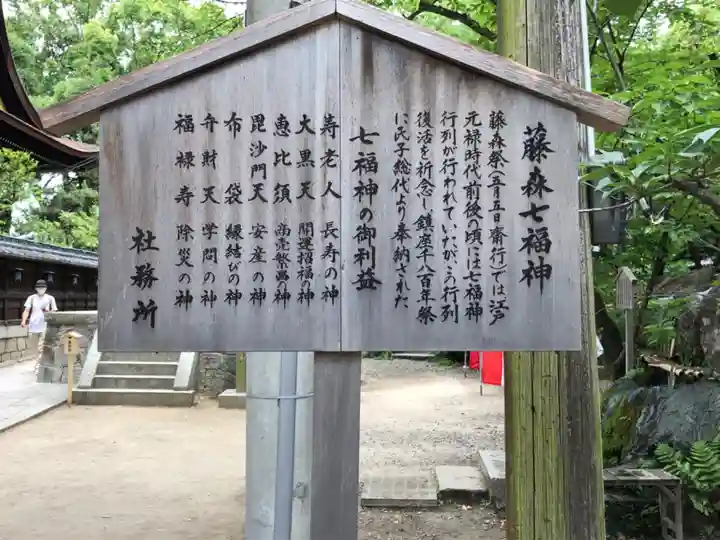 藤森七福神
藤森祭(五月五日齋行)では江戸
元禄時代前後の頃には七福神
行列が行われていたが、この行列
復活を祈念し鎮座千八百年祭
に氏子総代より奉納された
七福神の御利益
寿老人 長寿の神
大黒天 開運招福の神
恵比須 商売繁昌の神
毘沙門天 安産の神
布袋 縁結びの神
弁財天 学問の神
福禄寿 除災の神
社務所